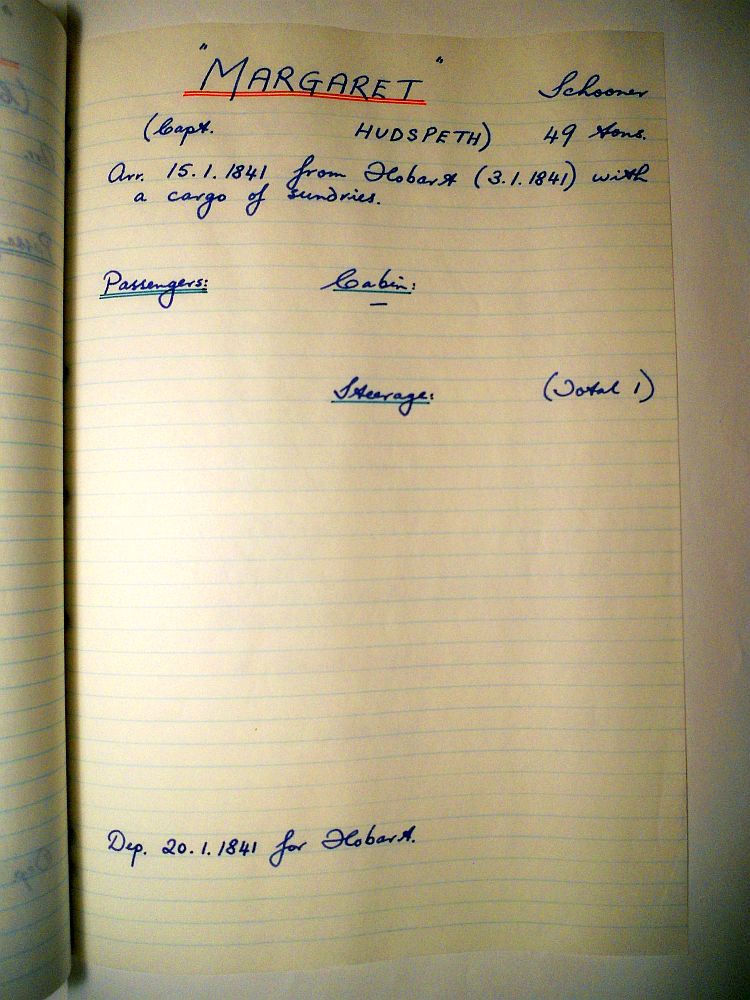 "MARGARET" Schooner
(Capt. HUDSPETH) 49 tons.
Arr. 15.1.1841 from Hobart (3.1.1841) with
a cargo of sundries.
Passengers: Cabin:
—
Steerage: (Total 1)
Dep. 20.1.1841 for Hobart.